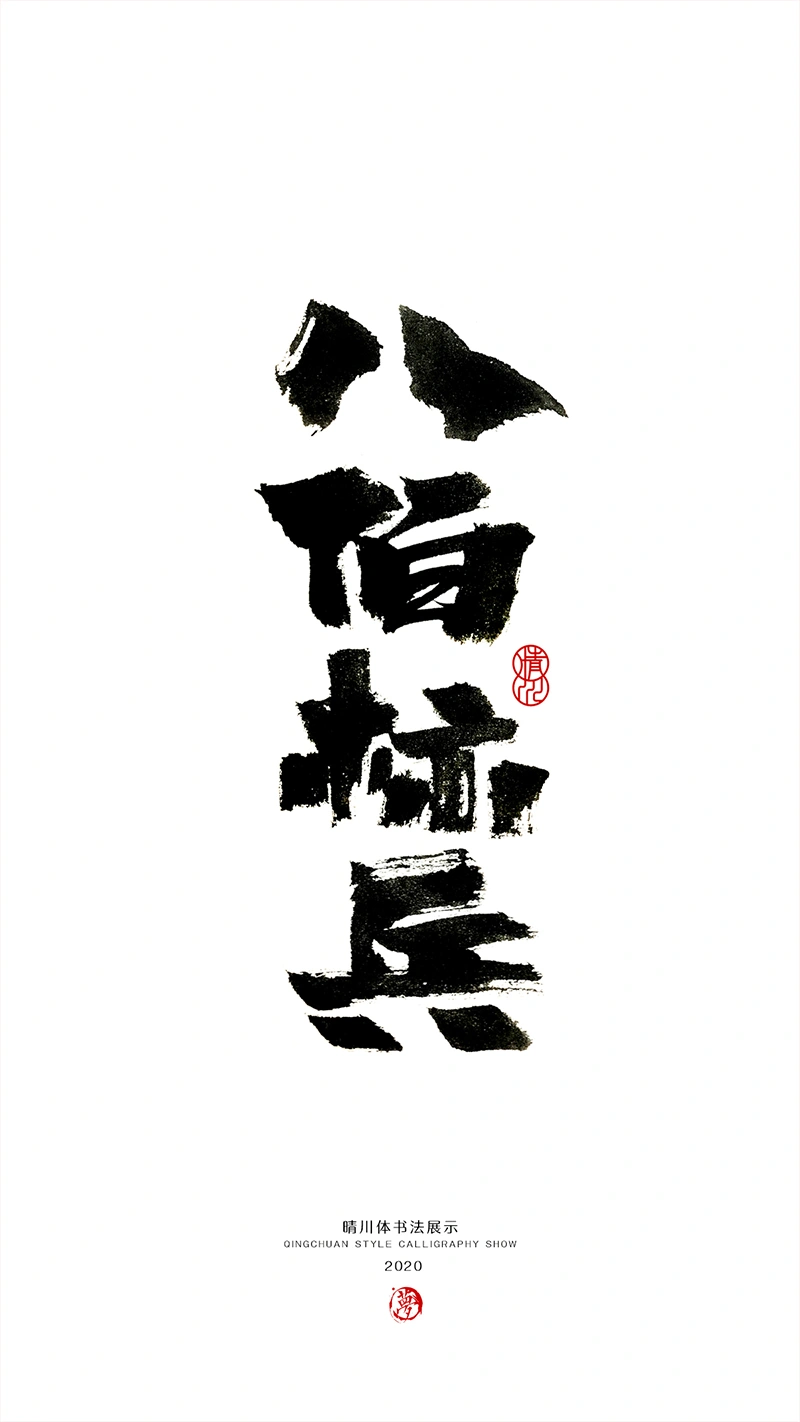 八佰标兵
晴川
晴川体书法展示
QINGCHUAN STYLE CALLIGRAPHY SHOW
2020
夢